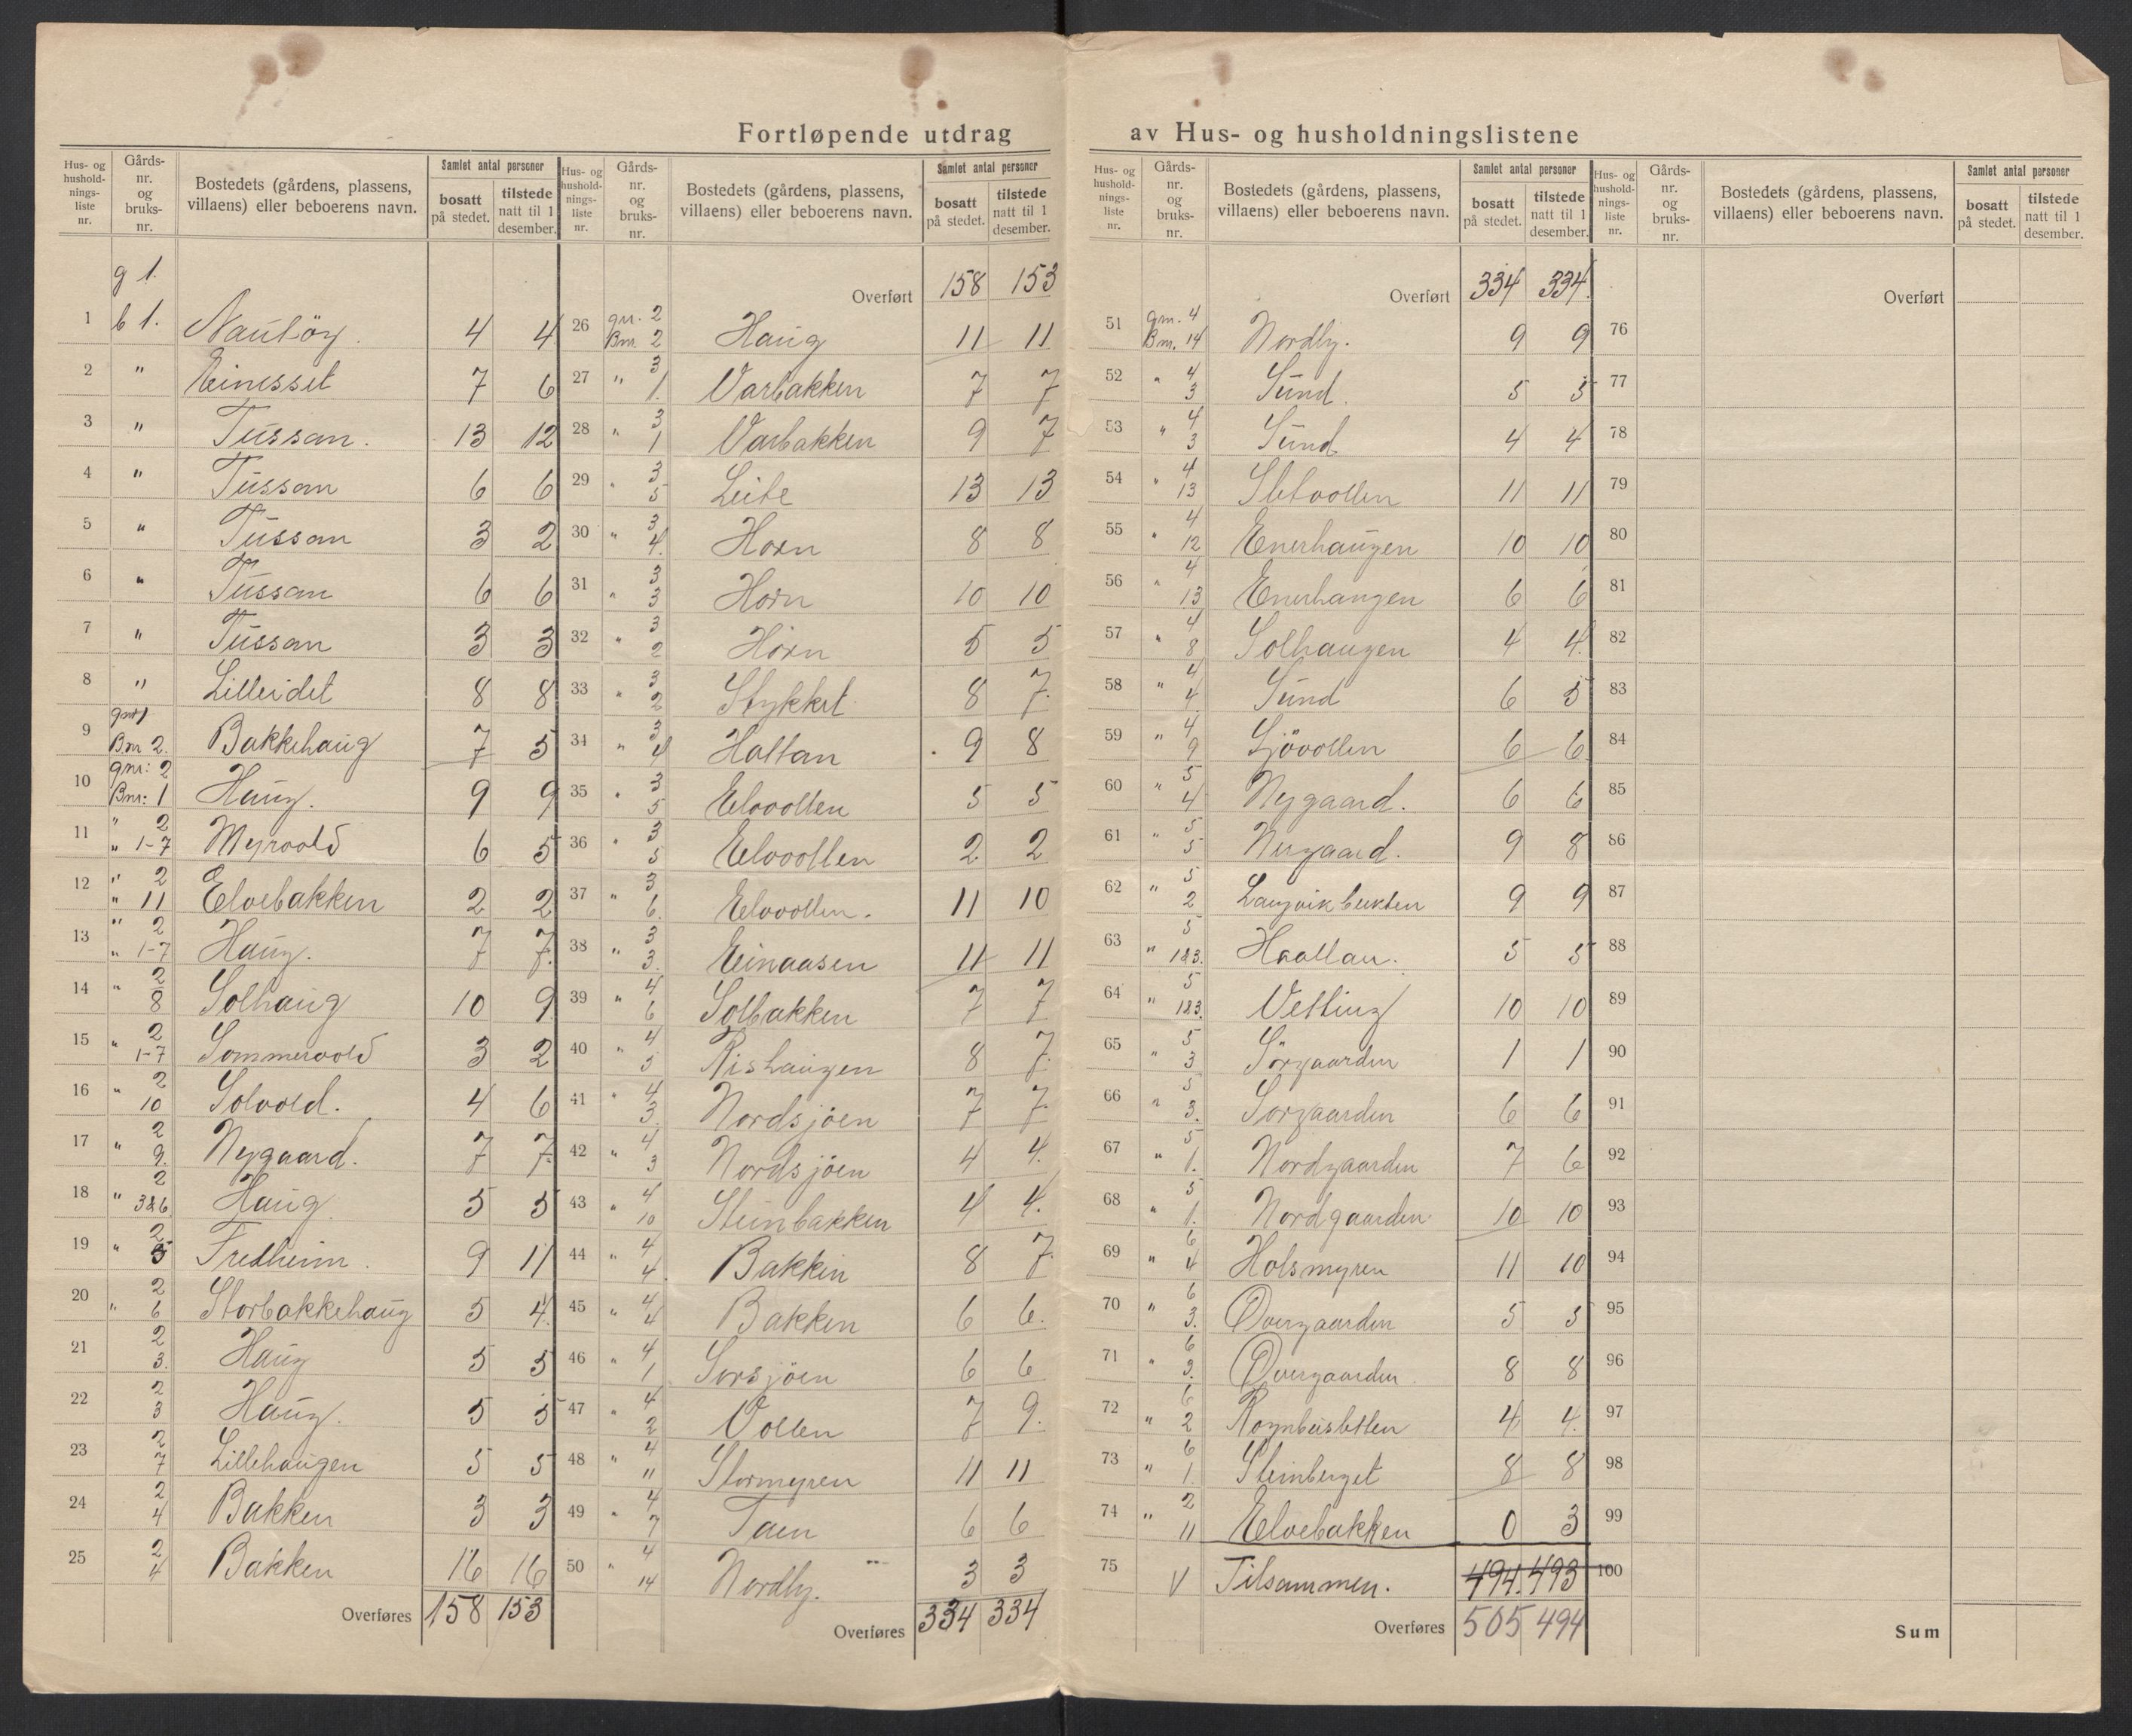 Fortløpende utdrag av Hus- og husholdningslistene
Hus- og hushold-nings-liste nr. | Gårds-nr. og bruks-nr. | Bostedets (gårdens, plassens, villaens) eller beboerens navn. | Samlet antal personer | bosatt på stedet. | tilstede natt til 1 desember.
g 1.
1 b 1. Nautöy. 4 4
2 " Einesset 7 6
3 " Tussan. 13 12
4 " Tussan 6 6
5 " Tussan 3 2
6 " Tussan 6 6
7 " Tussan 3 3
8 " Lilleidet 8 8
9 gnr 1 Bnr 2. Bakkehaug 7 5
10 gnr: 2 Bnr: 1 Haug. 9 9
11 " 2 " 1-7 Myrvold 6 5
12 " 2 " 11 Elvebakken 2 2
13 " 2 " 1-7 Haug. 7 7.
14 " 2 8 Solhaug 10 9
15 " 2 1-7 Sommervold 3 2
16 " 2 10 Solvold. 4 6
17 " 2 9. Nygaard. 7 7
18 " 2 3&6 Haug 5 5
19 " 2 5 Fredheim. 9 11
20 " 2 6 Storbakkehaug 5 4
21 2 3. Haug 5 5
22 2 3 Haug. 5 5
23 2 7 Lillehaugen 5 5
24 2 4 Bakken 3 3
25 2 4 Bakken 16 16
Overføres 158 153
Hus- og hushold-nings-liste nr. | Gårds-nr. og bruks-nr. | Bostedets (gårdens, plassens, villaens) eller beboerens navn. | Samlet antal personer | bosatt på stedet. | tilstede natt til 1 desember.
Overført 158 153
26 gnr. 2 Bnr. 2 Haug 11 11
27 " 3 1. Varbakken 7 7
28 " 3 1 Varbakken 9 7
29 " 3 5 Leite 13 13
30 " 3 4. Horn 8 8
31 " 3 3 Horn 10 10
32 " 3 2 Horn 5 5
33 " 3 2 Stykket 8 7.
34 " 3 4 Haltan 9 8
35 " 3 5 Elvvollen 5 5
36 " 3 5 Elvvollen 2 2
37 " 3 6. Elvvollen. 11 10
38 " 3 3. Einaasen 11 11
39 " 4 6 Solbakken 7 7
40 " 4 5 Rishaugen 8 7.
41 " 4 3. Nordsjöen 7 7.
42 " 4 3 Nordsjöen 4 4.
43 " 4 10 Steinbakken 4 4.
44 " 4 4. Bakken 8 7.
45 " 4 4 Bakken 6 6.
46 " 4 1 Sorsjöen 6 6
47 " 4 2 Vollen 7 9.
48 " 4 11 Stormyren 11 11
49 " 4 7 Taen 6 6
50 " 4 14 Nordby. 3 3
Overføres 334 334
Hus- og hushold-nings-liste nr. | Gårds-nr. og bruks-nr. | Bostedets (gårdens, plassens, villaens) eller beboerens navn. | Samlet antal personer | bosatt på stedet. | tilstede natt til 1 desember.
Overført 334 334.
51 gnr. 4 Bnr. 14 Nordby. 9 9
52 " 4 3 Sund. 5 5
53 " 4 3 Sund 4 4
54 " 4 13 Sletvollen 11 11
55 " 4 12 Enerhaugen 10 10
56 " 4 13 Enerhaugen 6 6
57 " 4 8 Solhaugen 4 4.
58 " 4 4. Sund 6 5
59 " 4 9 Sjövollen 6 6
60 " 5 4 Nygaard. 6 6
61 " 5 5 Nergaard. 9 8
62 " 5 2 Langvikbukten 9 9
63 " 5 1&3. Haaltan. 5 5
64 " 5 1&3. Vetting 10 10
65 " 5 3 Sörgaarden 1 1
66 " 5 3. Sorgaarden 6 6
67 " 5 1. Nordgaarden 7 6
68 " 5 1. Nordgaarden 10 10
69 " 6 4 Holsmyren 11 10
70 " 6 3. Overgaarden 5 5
71 " 6 3. Overgaarden. 8 8
72 " 6 2 Rognbusletten 4 4.
73 " 6 1. Steinberget 8 8
74 " 2 11 Elvebakken 0 3
75 V Tilsammen. 494. 493
Overføres 505 494
Hus- og hushold-nings-liste nr. | Gårds-nr. og bruks-nr. | Bostedets (gårdens, plassens, villaens) eller beboerens navn. | Samlet antal personer | bosatt på stedet. | tilstede natt til 1 desember.
Overført
76
77
78
79
80
81
82
83
84
85
86
87
88
89
90
91
92
93
94
95
96
97
98
99
100
Sum